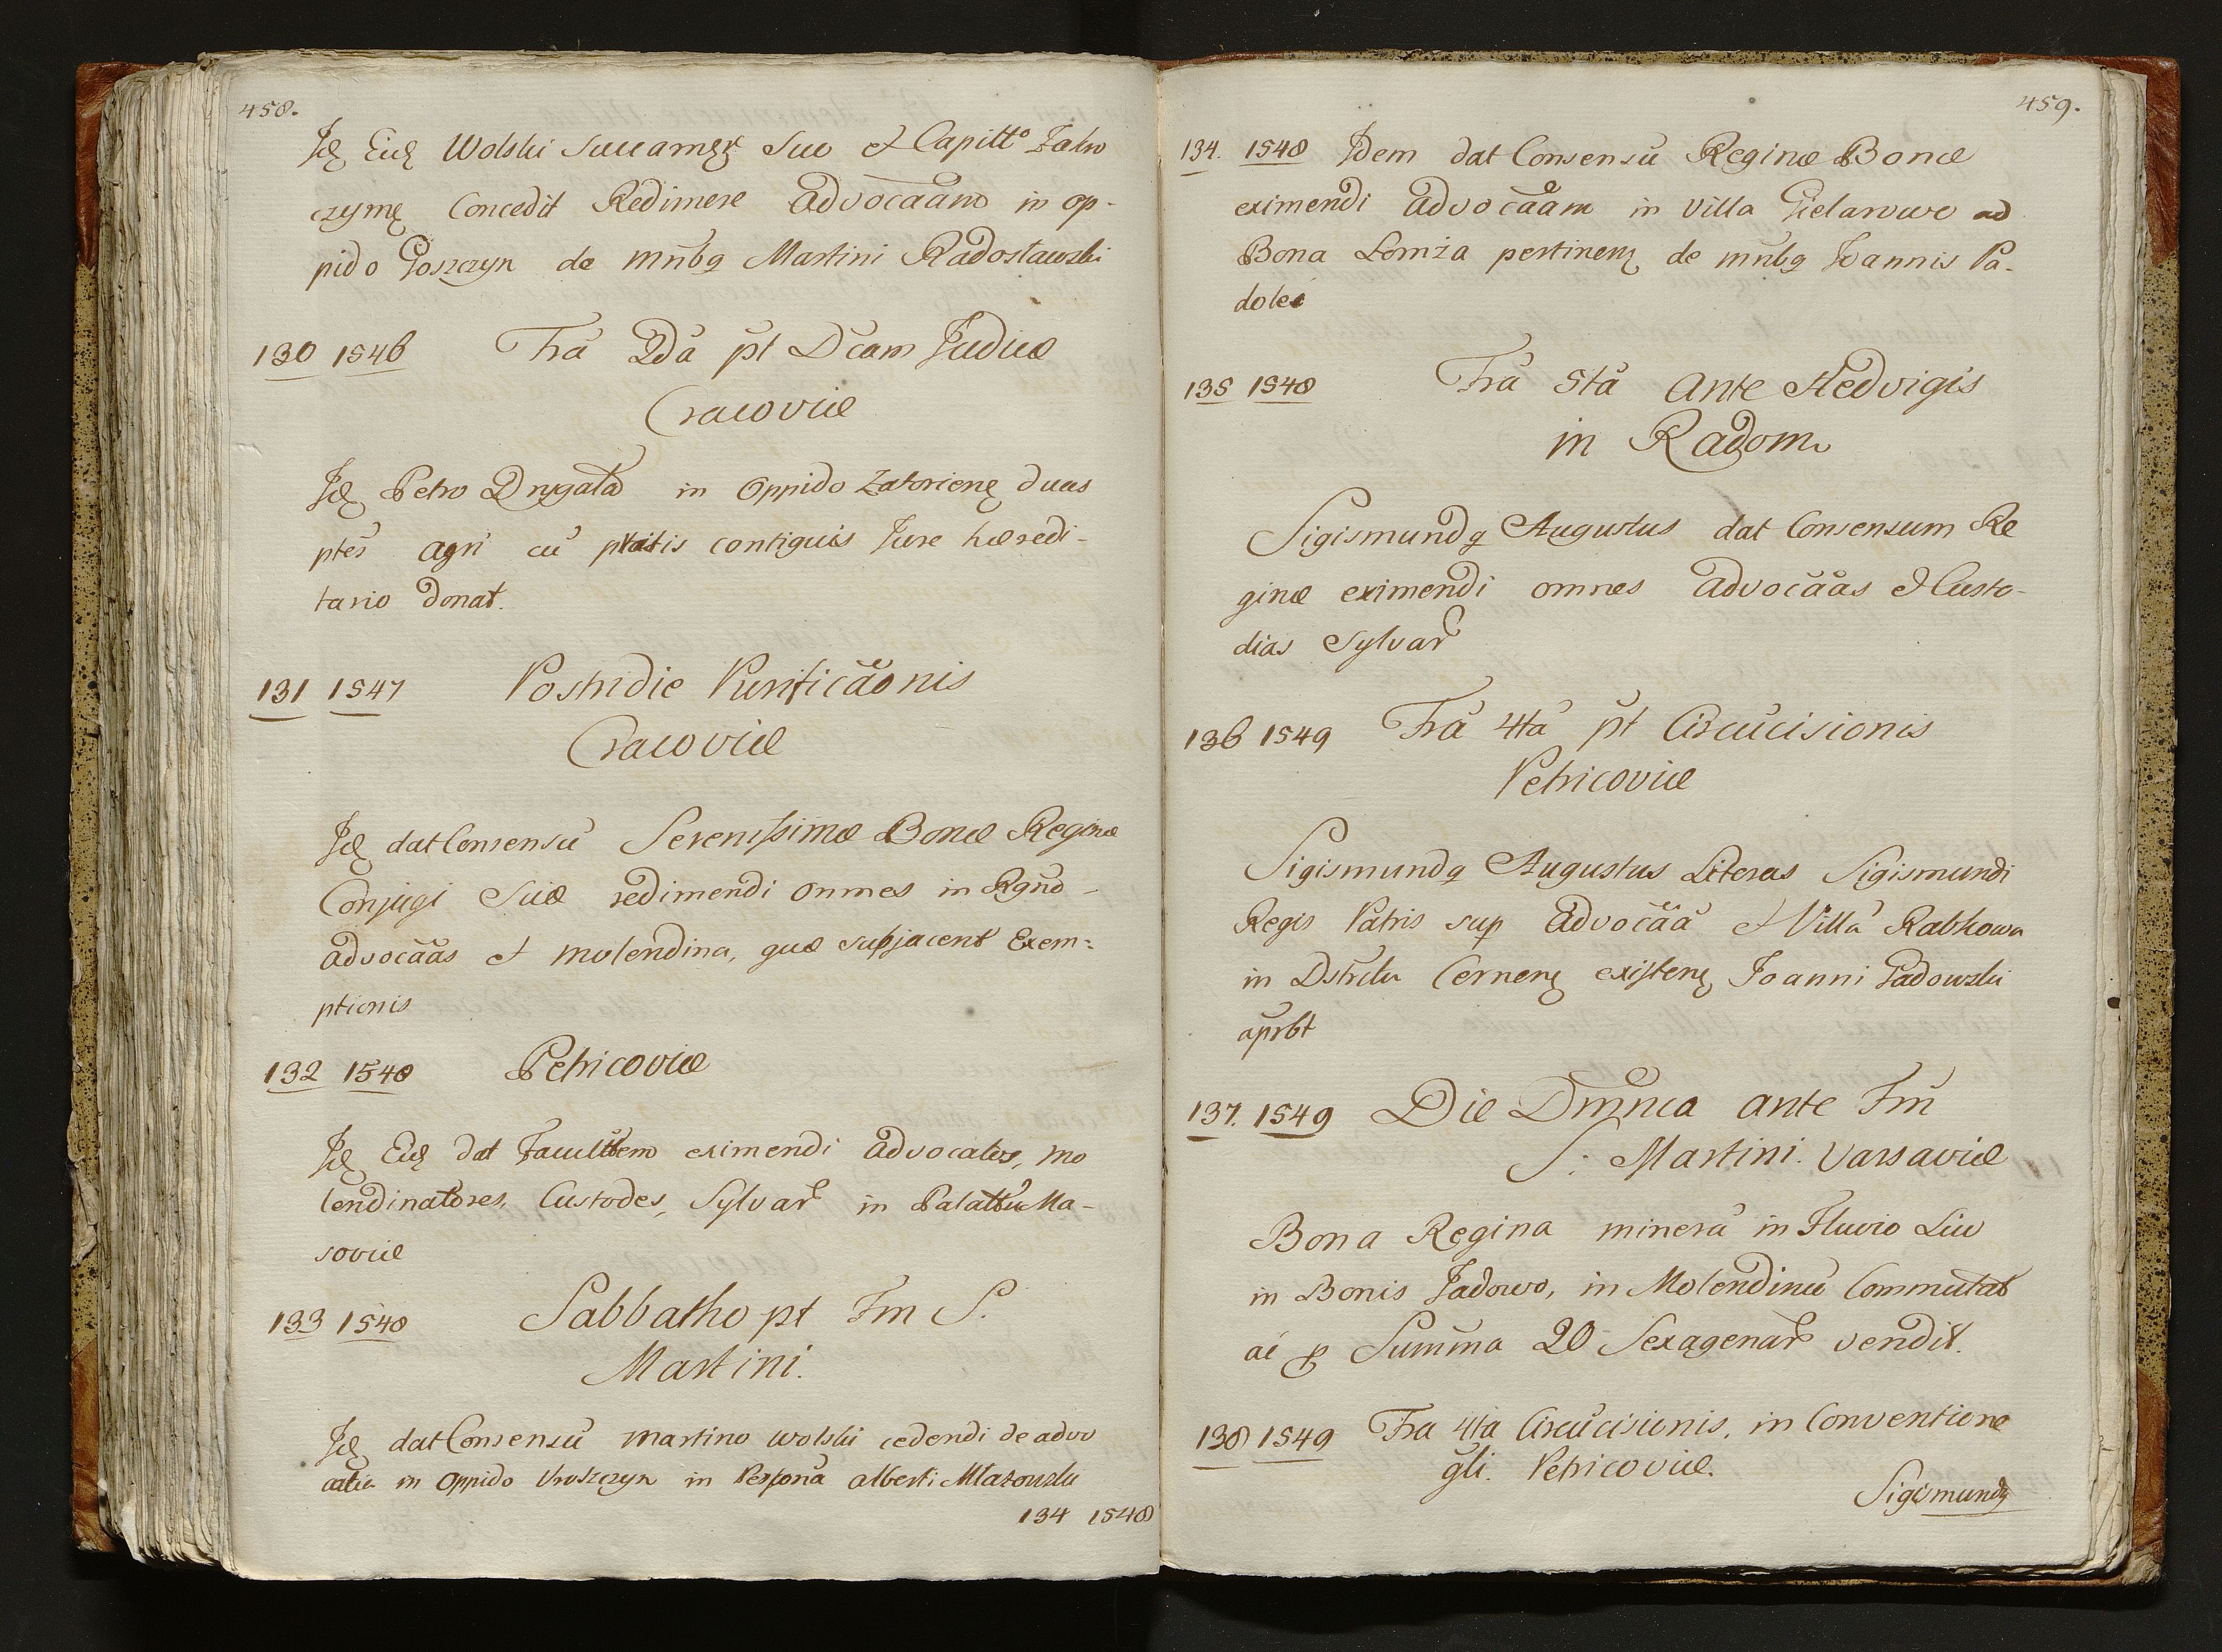 458.
Id Eid Wolski Succamerꝛ Suo et Capitto Zakro
czymę Concedit Redimere Advocaãm in op-
pido Goszczyn de mñbq Martini Radostawski
130 1546 Fra 2dã p̃t Dc̃am Judicæ
Cracoviæ
Id Petro Drygała in Oppido Zatorienę duas
ptẽs agri cũ pratis contiguis Jure hæredi-
tario Donat.
131 1547 Postridie Purificãonis
Cracoviæ
Id dat Consensũ Serenissimæ Bonæ Reginæ
Conjugi Suæ redimendi omnes in Rgño
advocãas et molendina, quæ subjacent Exem=
ptionis
132 1548 Petricoviæ
Id Eid dat Facultatem eximendi advocatos, mo
lendinatores, Custodes, Sylvar in Palattu Ma-
soviæ
133 1548 Sabbatho pt Fm S.
Martini.
Id dat Consensũ Martino Wolski cedendi de advo
catia in Oppido in Persona alberti
134 1548
459.
134. 1548 Idem dat Consensũ Reginæ Bonæ
eximendi advocãam in Villa Gielarowo ad
Bona Lomża pertinenę de mñbq Joannis Pa-
dolei
135 1548 Fra 5tã ante Hedvigis
in Radom
Sigismundq Augustus dat Consensum Re
ginæ eximendi omnes advocãas et Custo-
dias Sylvar
136 1549 Frã 4tã p̃t Circũcisionis
Petricoviæ
Sigismundq Augustus Literas Sigismundi
Regis Patris sup advocãã et Villã Rabkowa
in Dstrictu Cernenę existenę Joanni Gadowski
aprbt
137. 1549 Die Dm̃nca ante Fm̃
S. Martini. Varsaviæ
Bona Regina minerã in Fluvio Liw
in Bonis Jadowo, in Molendinũ Commutat
ac p Sum̃a 20 Sexagenar vendit.
138 1549 Fra 4ta Circũcisionis, in Conventione
gli. Petricoviæ.
Sigismundq